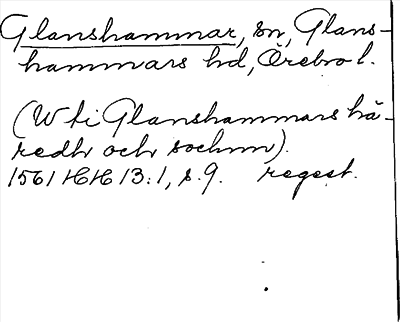 Glanshammar, sn, Glans-
hammars hd, Örebro l.
(W ti Glanshammars hä-
redh och sochnn).
1561 HH 13:1, s. 9. regest.